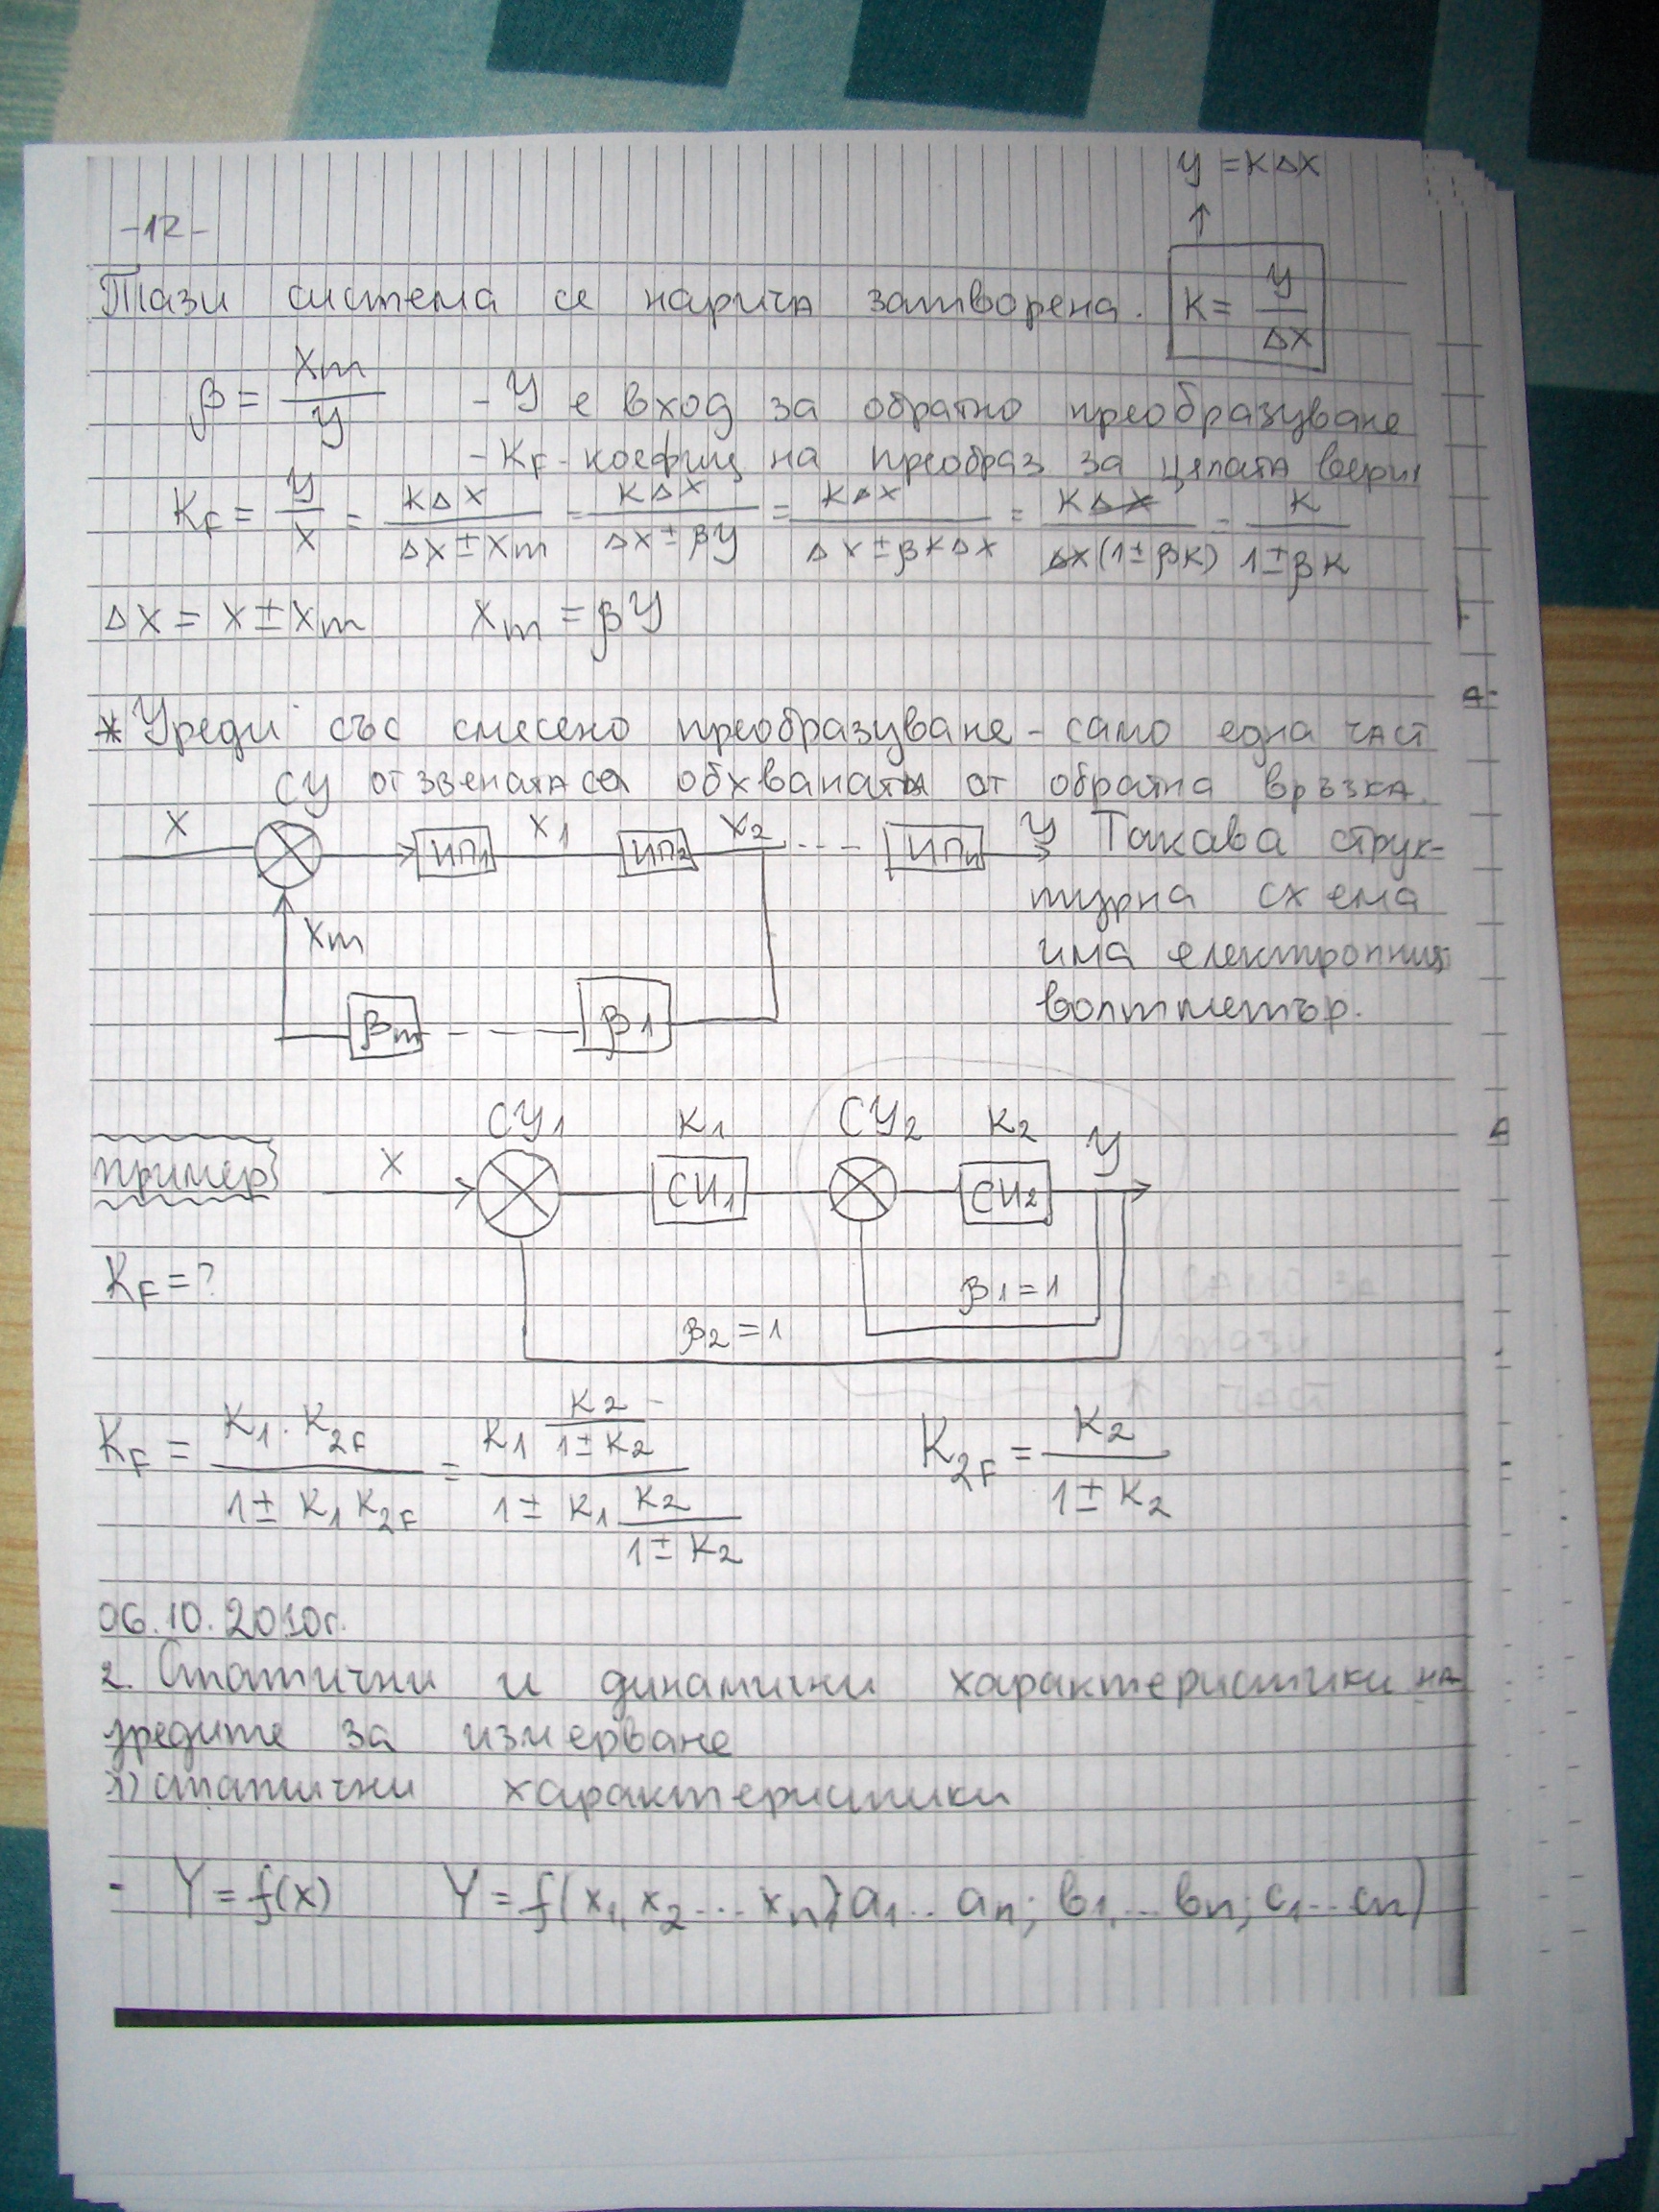 y = KΔX
↑
-12-
Тази система се нарича затворена. K = y/ΔX
β = Xm/y - У е вход за обратно преобразуване
- KF - коефиц на преобраз за цялата
KF = y/x = KΔX/(ΔX ± Xm) = KΔX/(ΔX ± βy) = KΔX/(ΔX ± βKΔX) = KΔX/(ΔX(1 ± βK)) = K/(1 ± βK)
ΔX = X ± Xm Xm = βУ
* Уреди със смесено преобразуване - само една част
СУ от звената са обхванати от обратна връзка.
X ИП1 X1 ИП2 X2 --- ИПn У Такава струк-
турна схема
Xm има електронния
волтметър.
βm --- β1
СУ1 K1 СУ2 K2 У
пример X СИ1 СИ2
KF = ?
β1 = 1
β2 = 1
KF = K1 . K2F/(1 ± K1 K2F) = K1 K2/(1 ± K2)/(1 ± K1 K2/(1 ± K2)) K2F = K2/(1 ± K2)
06.10.2010г.
2. Статични и динамични характеристики на
уредите за измерване
1) статични характеристики
- Y = f(x) Y = f(x1, x2 ... xn; a1 .. an; в1, ... вn; c1 ... cn)